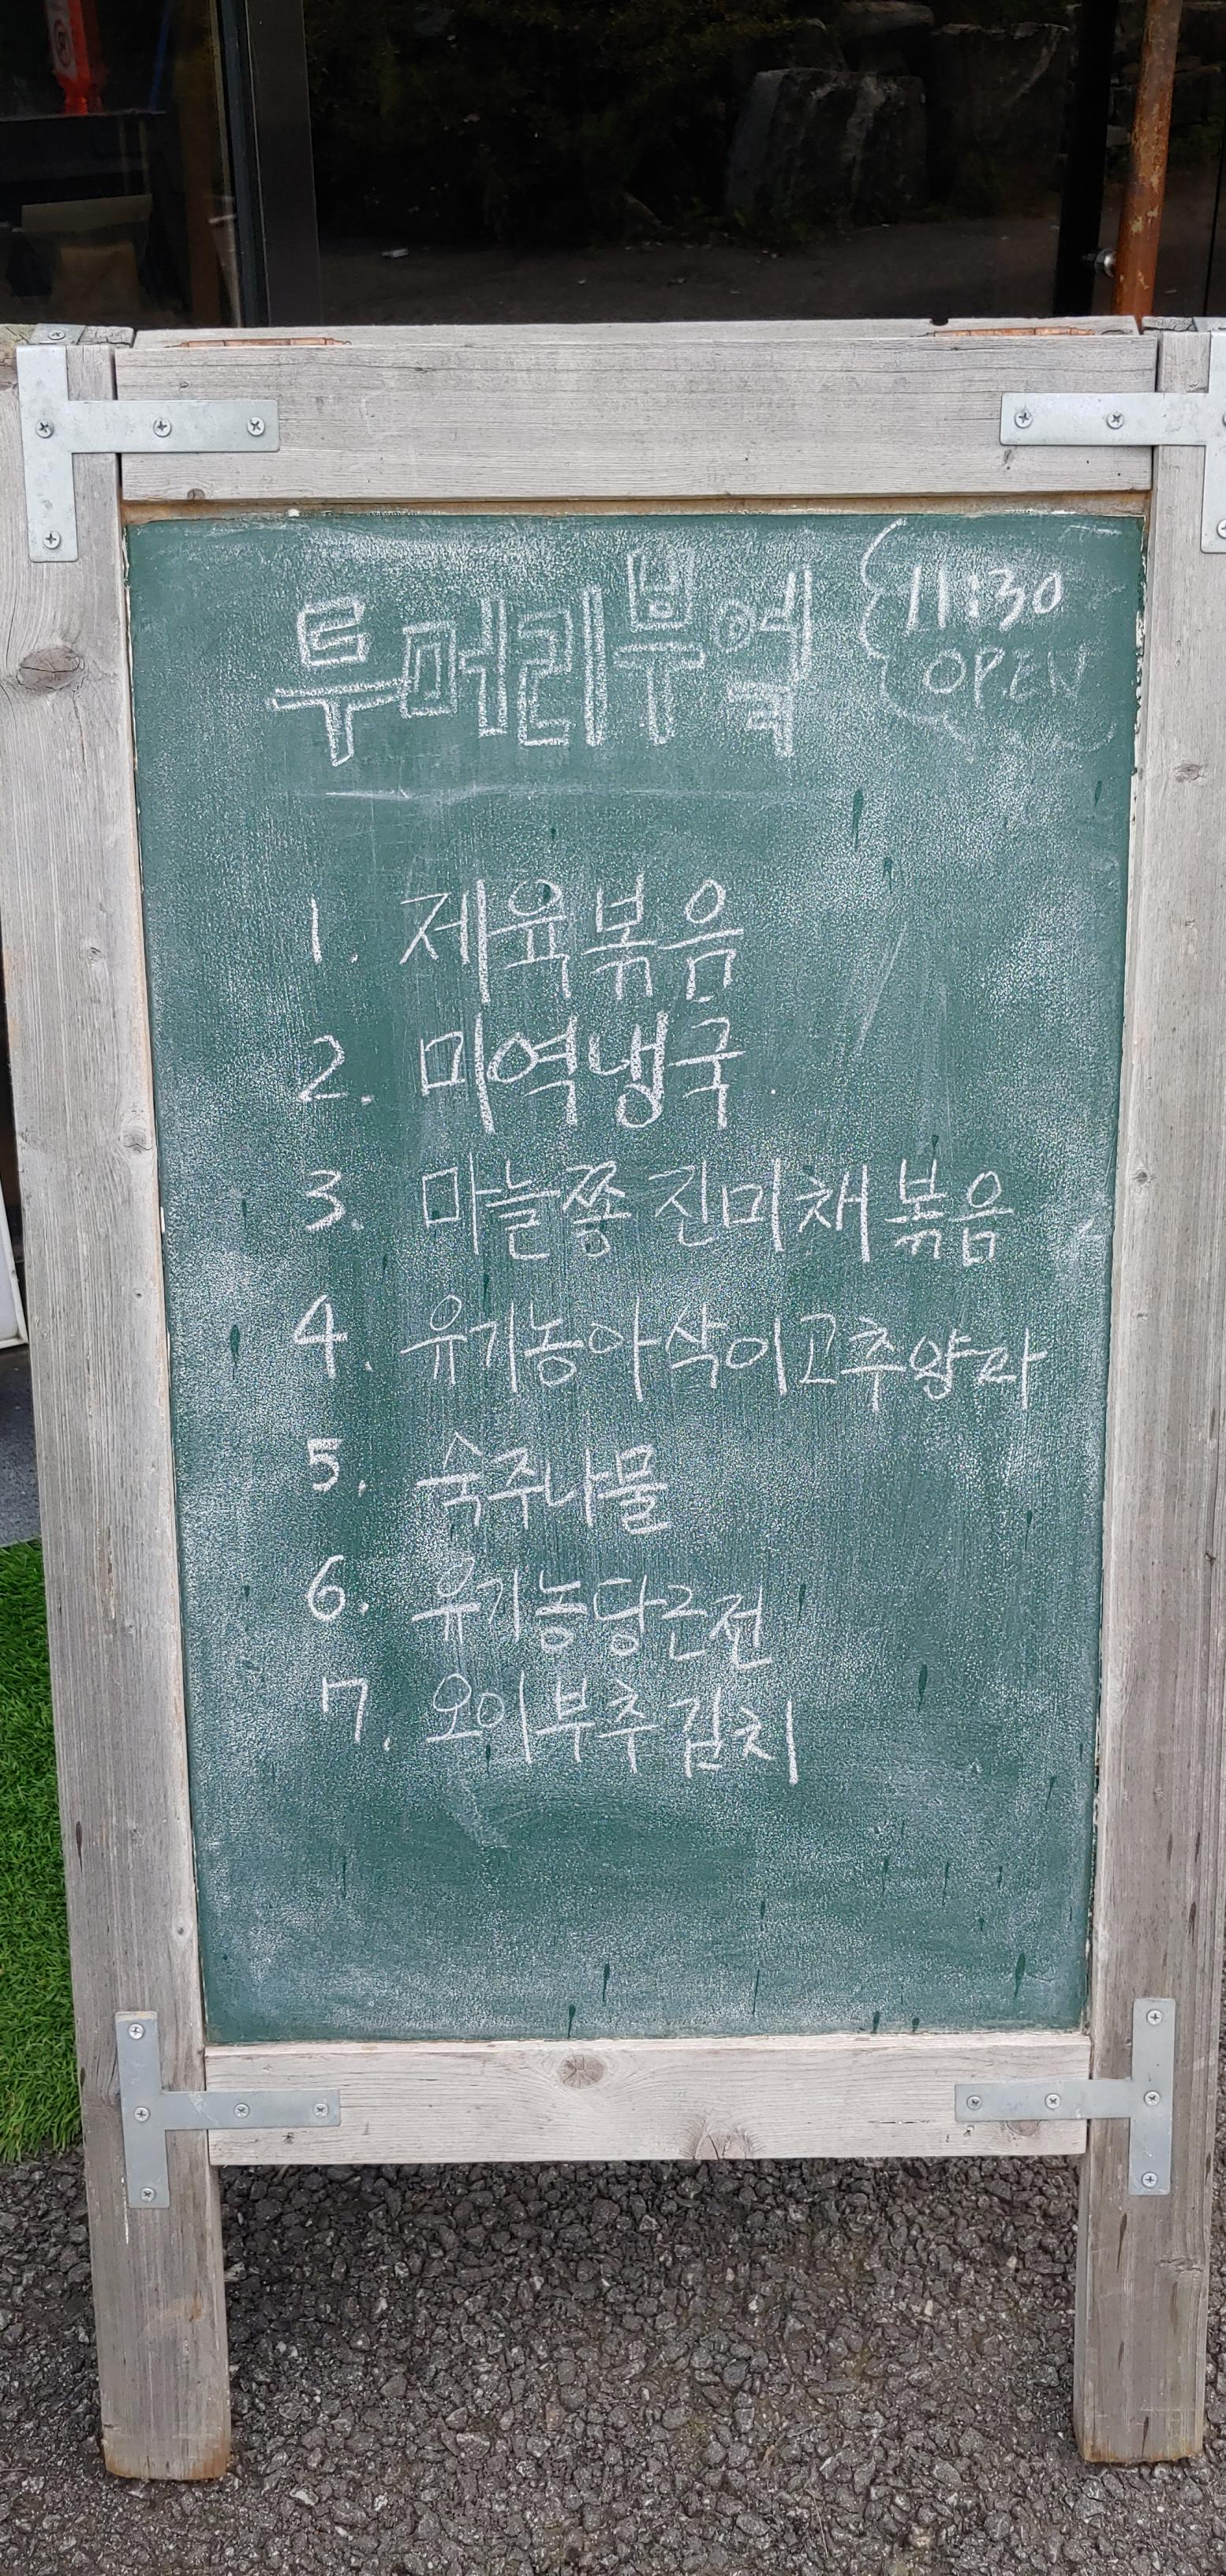 투머리부엌
11:30
OPEN
1. 제육볶음
2. 미역냉국
3. 마늘쫑 진미채 볶음
4. 유기농아삭이고추양파
5. 숙주나물
6. 유기농당근전
7. 오이부추김치